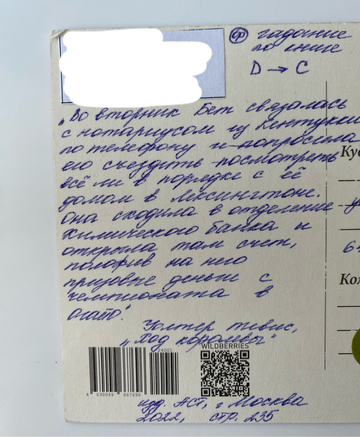 ф гадание
по книге
D → C
„Во вторник Бет связалась
с нотариусом из Кентукки
по телефону и попросила
его съездить посмотреть
всё ли в порядке с её
домом в Лексингтоне.
Она сходила в отделение
Химического банка и
открыла там счёт,
положив на него
призовые деньги с
чемпионата в
Огайо."
Уолтер Тевис,
„Ход королевы"
WILDBERRIES
изд. АСТ, г. Москва
2022, стр. 235
Ку
Ко